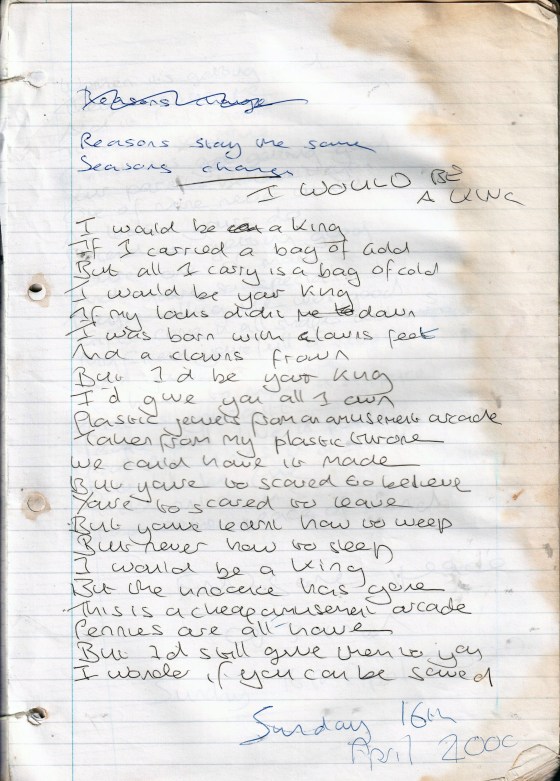 Reasons change
Reasons stay the same
Seasons change
I WOULD BE
A KING
I would be a King
If I carried a bag of Gold
But all I carry is a bag of cold
I would be your King
If my looks didnt me down
I was born with clowns feet
And a clowns frown
But I'd be your King
I'd give you all I own
Plastic jewels from an amusement arcade
Taken from my plastic throne
We could have it made
But you're to scared to believe
You're to scared to leave
But you've learnt how to weep
But never how to sleep
I would be a King
But the has gone
This is a cheap amusement arcade
Pennies are all I have
But I'd still give them to you
I wonder if you can be saved
Sunday 16th
April 2000